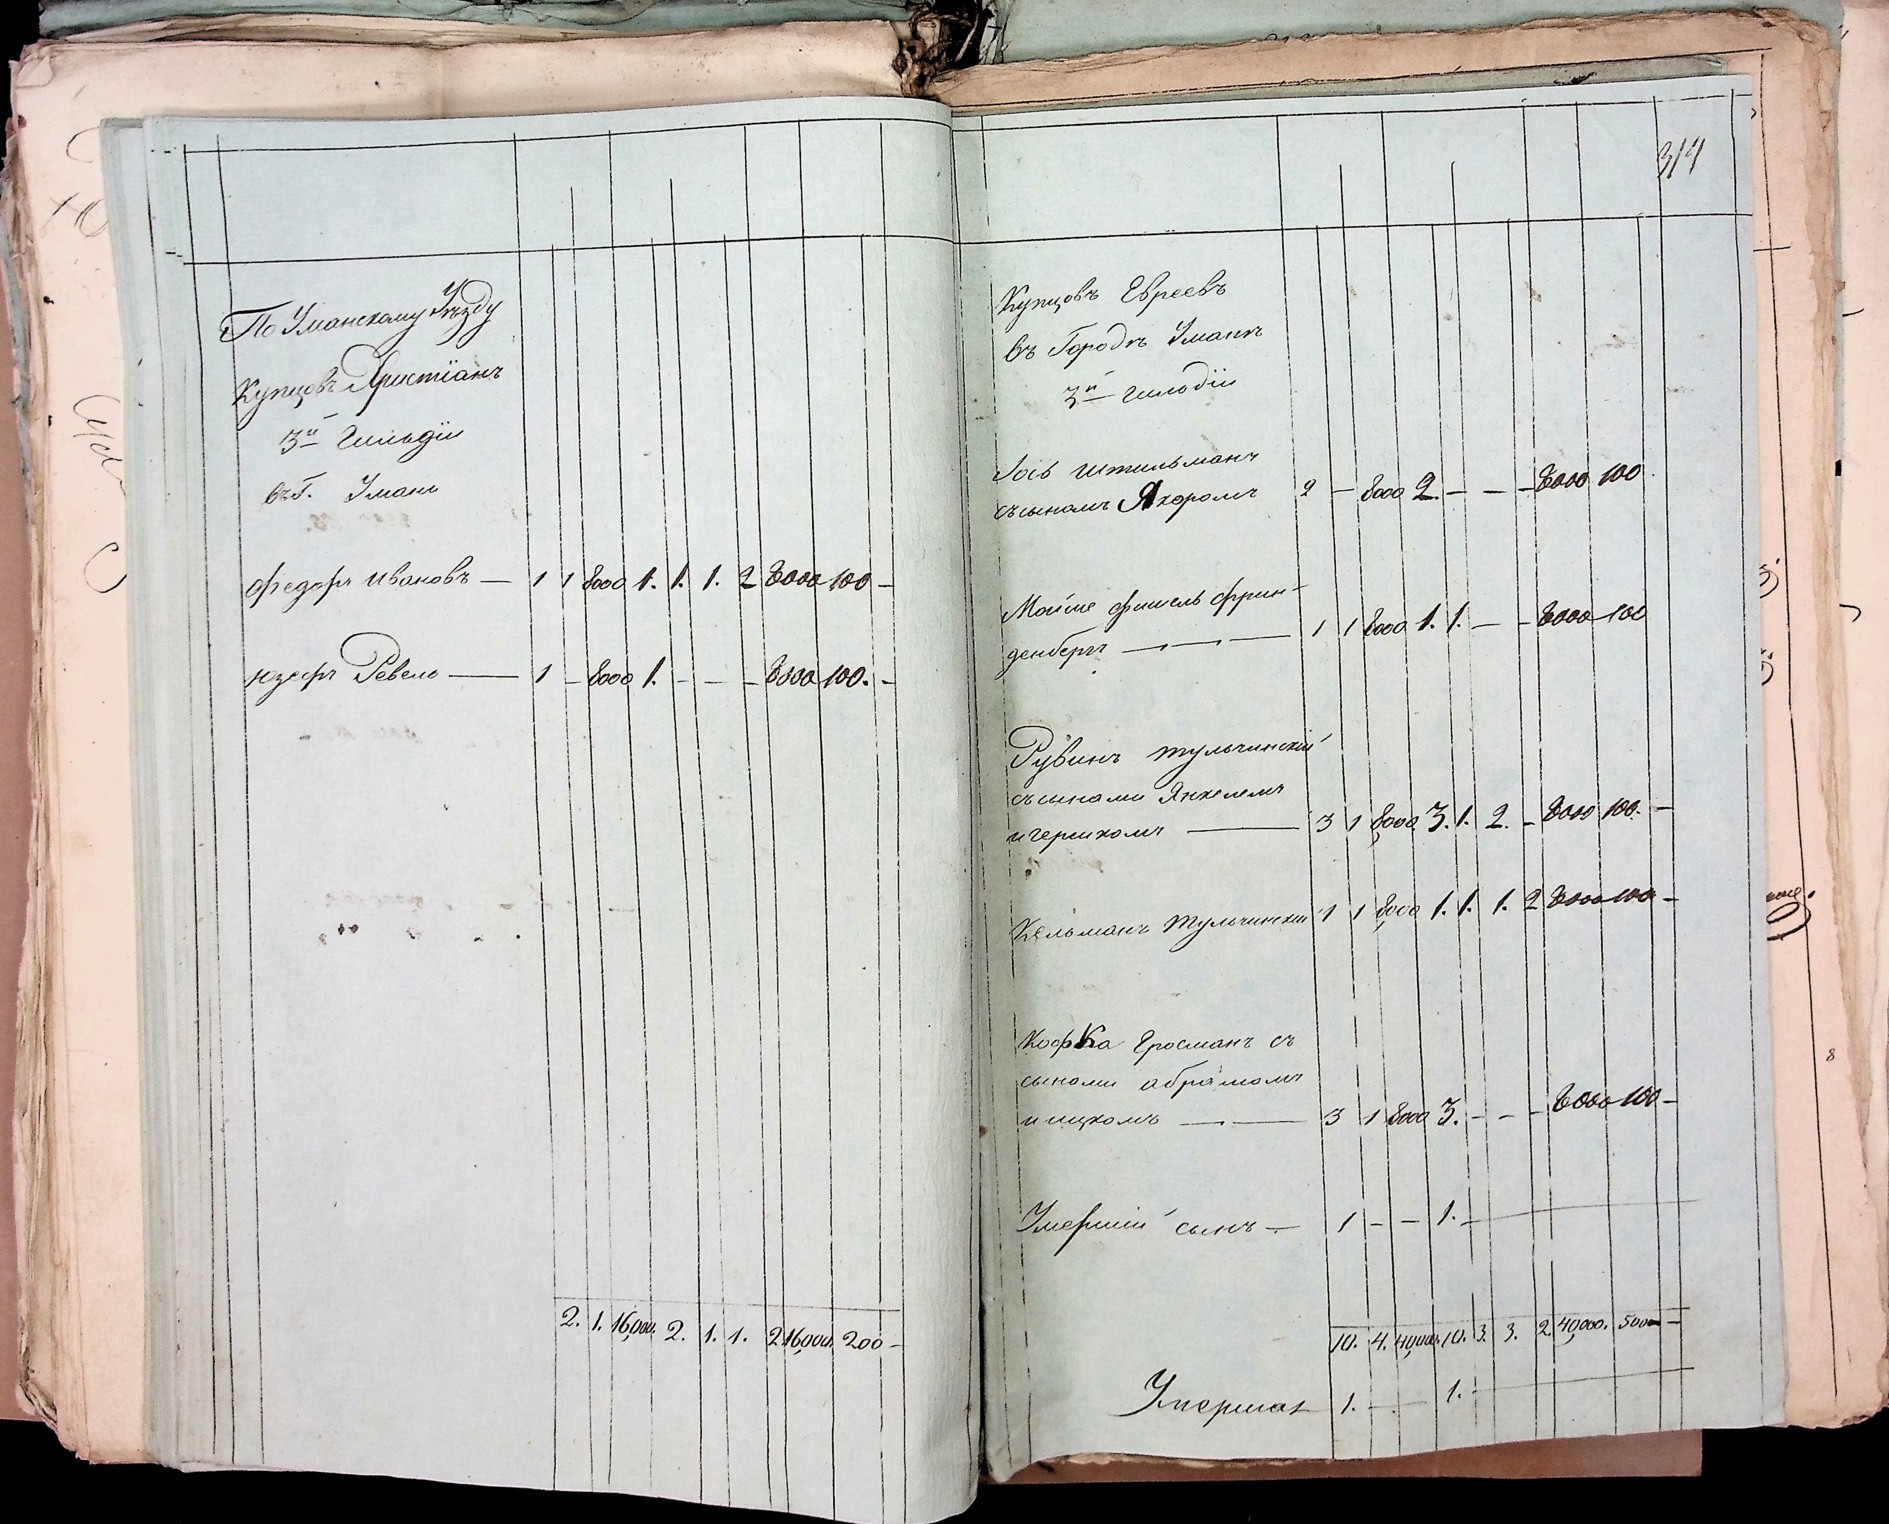 По Уманскому Уѣзду
Купцовъ Христіанъ
3й Гильдіи
въ Г. Умани
Федоръ Ивановъ — 1 1 8000 1. 1. 1. 2 8000 100 —
Юзефъ Ревель — 1 — 8000 1. — — — 8000 100. —
2. 1. 16,000. 2. 1. 1. 2 16,000. 200 —
314
Купцовъ Евреевъ
въ Городѣ Уманѣ
3й гильдіи
Іось Штильманъ
съ сыномъ 2 — 8000 2. — — — 8000 100
Мойше Фишель Фрин-
денбергъ — 1 1 8000 1. 1. — — 8000 100
Рувинъ Тульчинскій
съ сынами Янкелемъ
и Гершкомъ — 3 1 8000 3. 1. 2. — 8000 100. —
Кельманъ Тульчинскій 1 1 8000 1. 1. 1. 2 8000 100 —
Кофка Гросманъ съ
сынами Абрамомъ
и Ицкомъ — 3 1 8000 3. — — — 8000 100 —
Умершій сынъ — 1 — — 1. —
10. 4. 40,000. 10. 3. 3. 2. 40,000. 500 —
1. — — 1. —